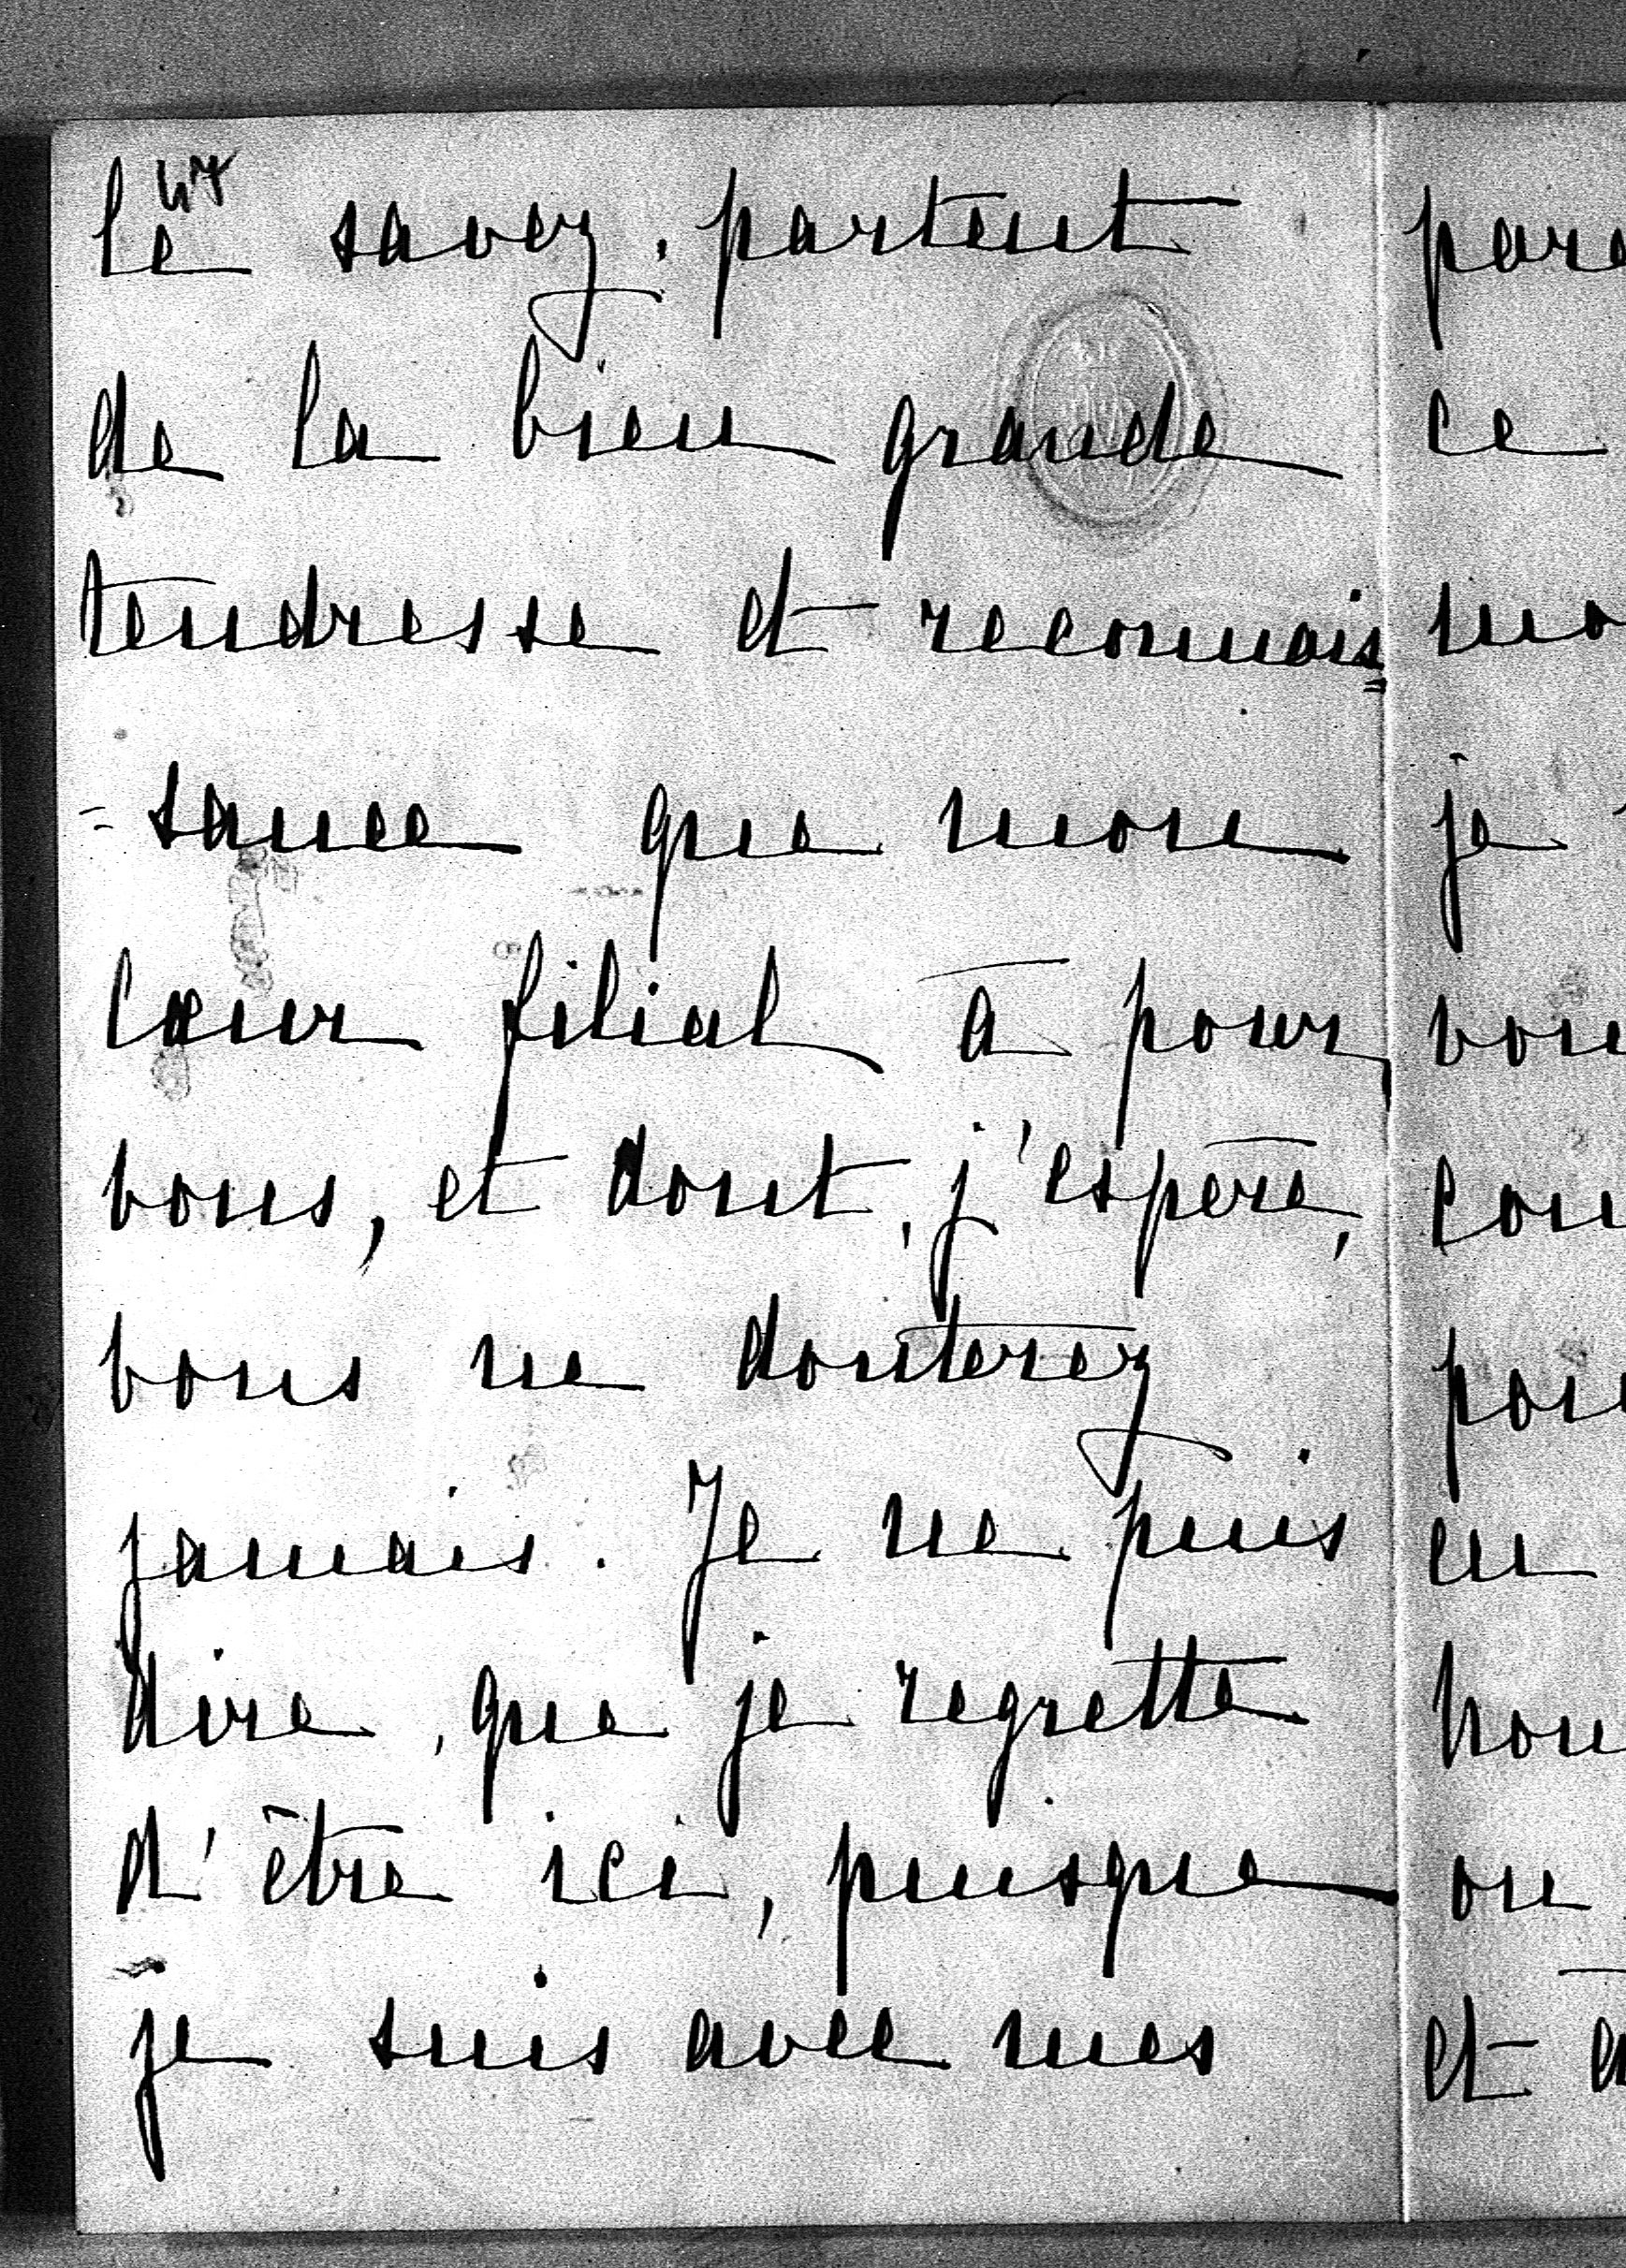 47
le savez, partent
de la bien grande
tendresse et reconnais=
=sance que mon
cœur filial a pour
vous, et dont, j'espère,
vous ne douterez
jamais. Je ne puis
dire, que je regrette
d'être ici, puisque
je suis avec mes
ce
je
en
on
et